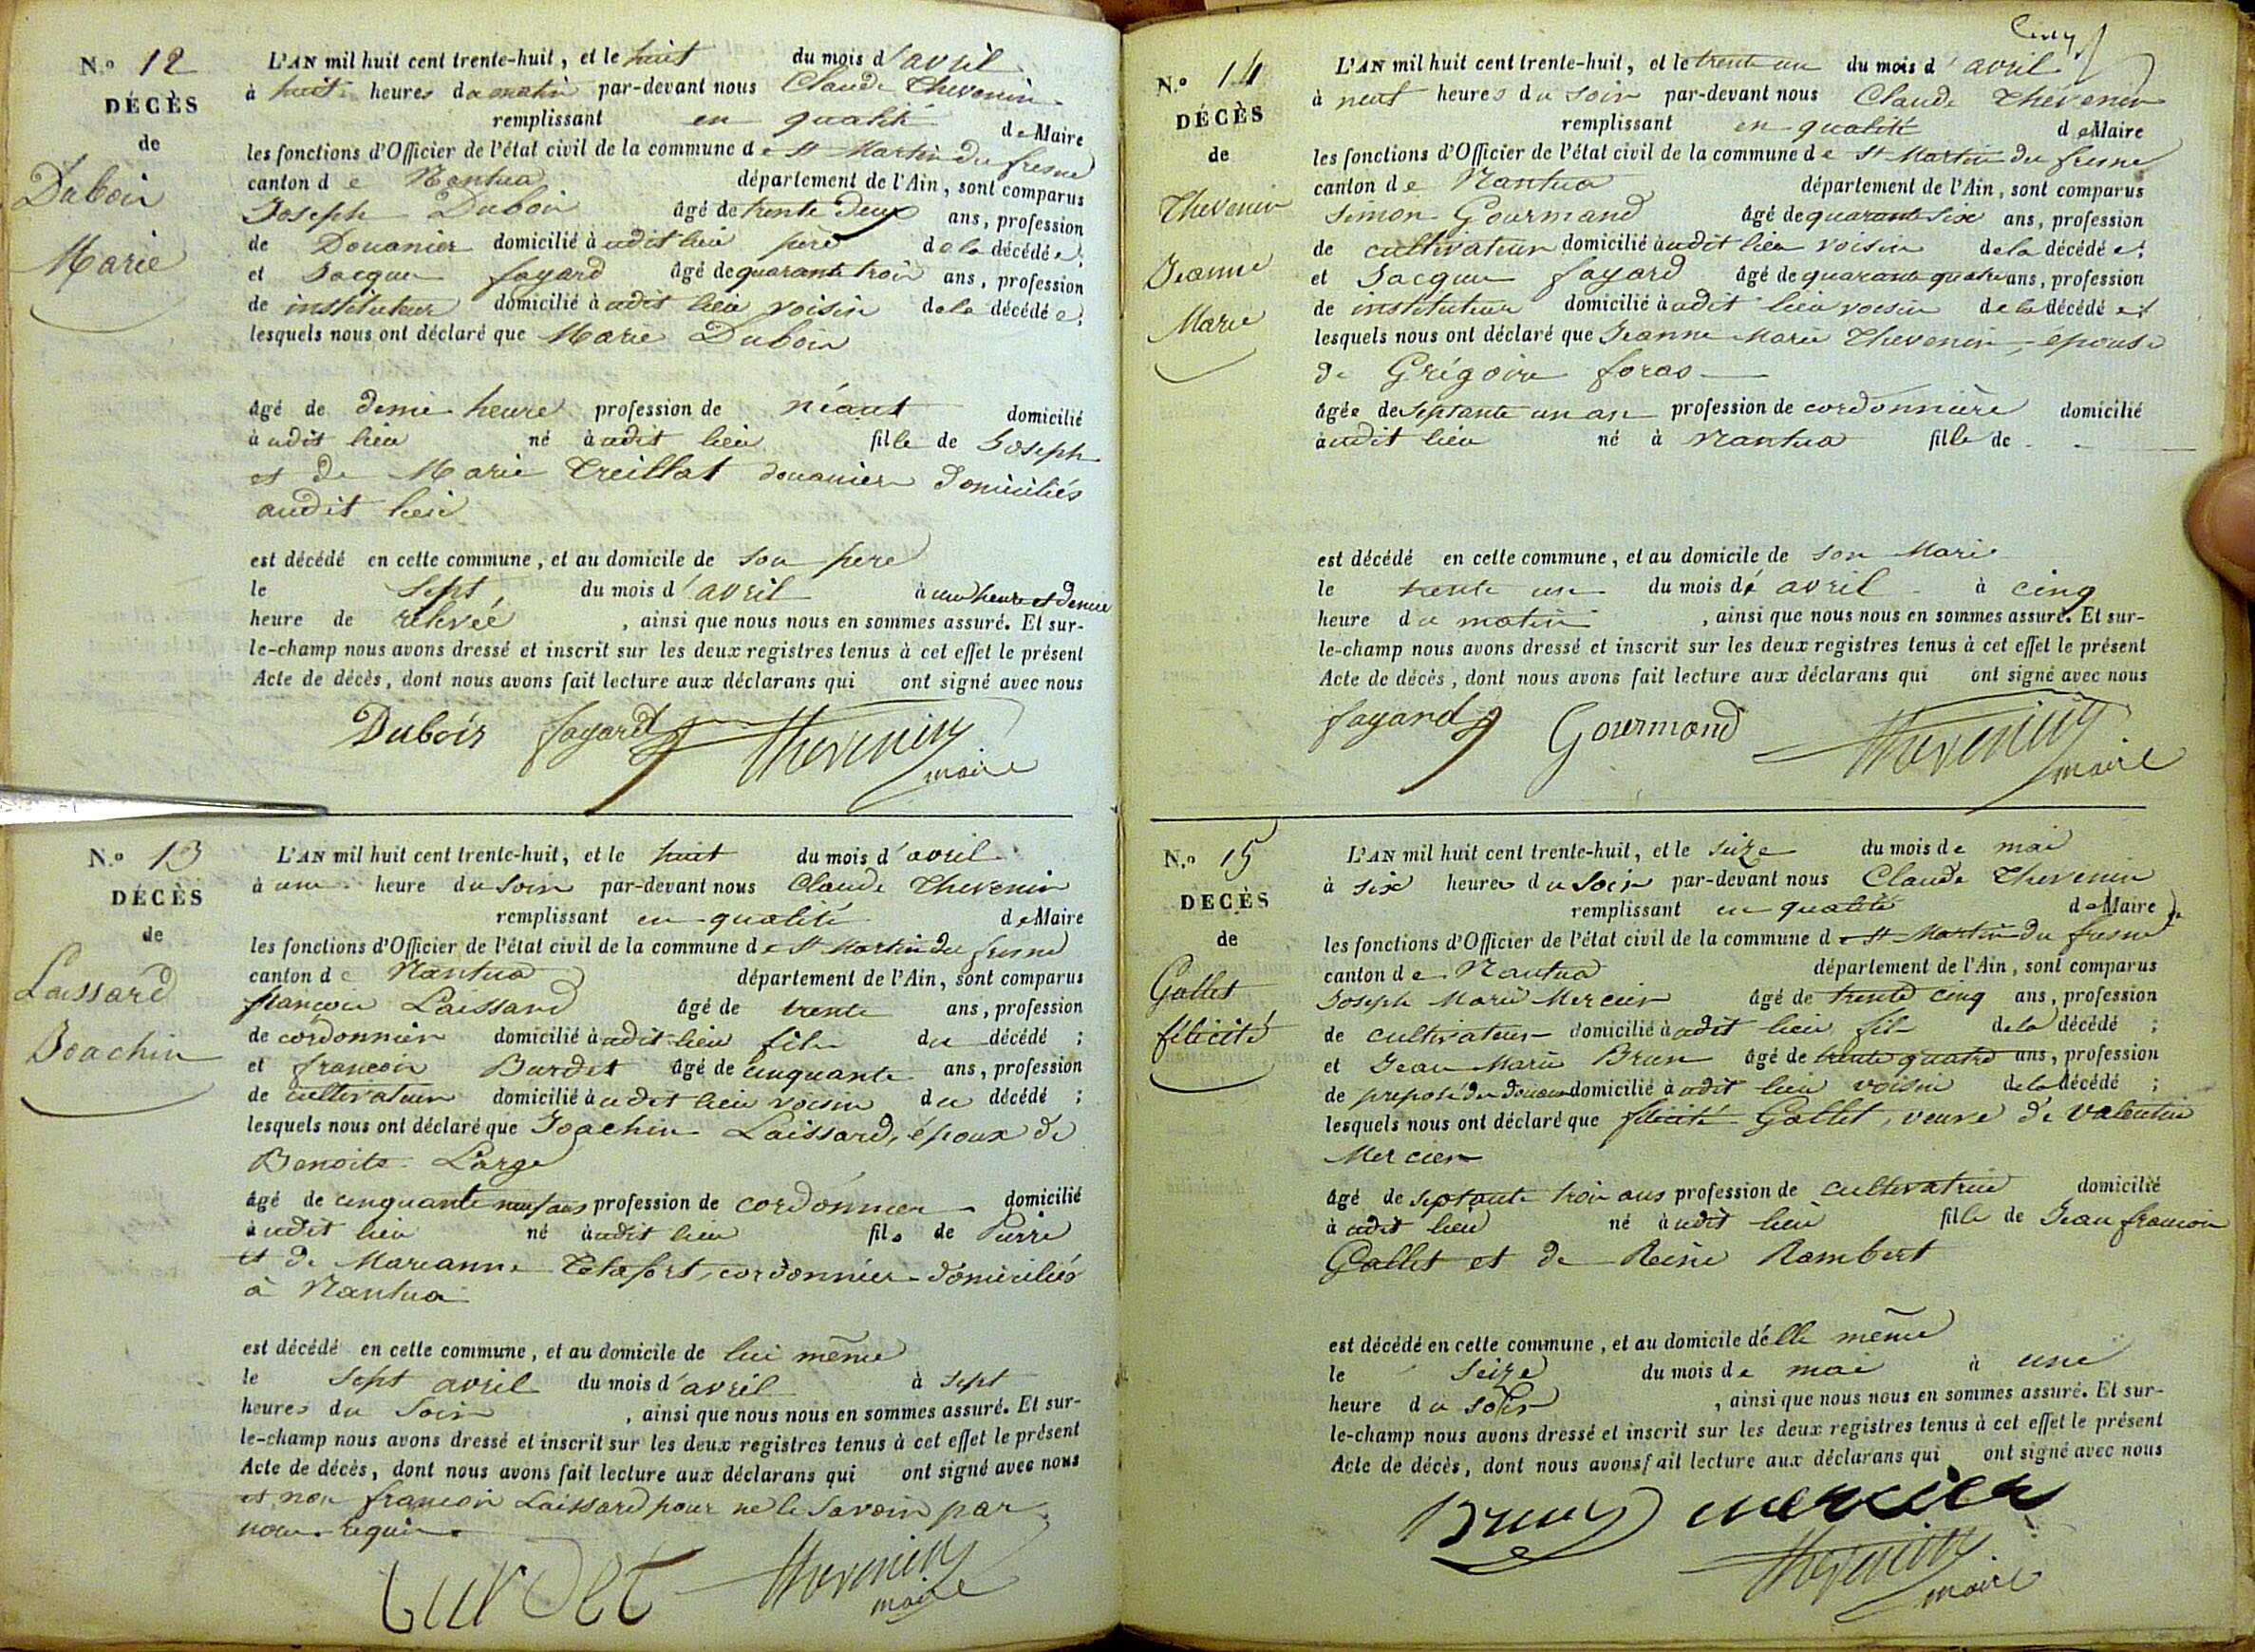 N.º 12
DÉCÈS
de
Duboin
Marie
L'AN mil huit cent trente-huit, et le huit du mois d'avril
à huit heures du matin par-devant nous Claude Thevenin
remplissant en qualité de Maire
les fonctions d'Officier de l'état civil de la commune de St Martin du fresne
canton de Nantua département de l'Ain, sont comparus
Joseph Duboin âgé de trente deux ans, profession
de Douanier domicilié à udit lieu père de la décédée;
et Jacques fayard âgé de quarante trois ans, profession
de instituteur domicilié à udit lieu voisin de la décédée;
lesquels nous ont déclaré que Marie Duboin
âgé de demie heure profession de néant domicilié
à udit lieu né à udit lieu fille de Joseph
et de Marie Treillat douanier domiciliés
audit lieu
est décédé en cette commune, et au domicile de son père
le sept du mois d'avril à une heure et demie
heure de relevée, ainsi que nous nous en sommes assuré. Et sur-
le-champ nous avons dressé et inscrit sur les deux registres tenus à cet effet le présent
Acte de décès, dont nous avons fait lecture aux déclarans qui ont signé avec nous
Duboir fayard Thevenin
maire
N.º 13
DÉCÈS
de
Laissard
Joachin
L'AN mil huit cent trente-huit, et le huit du mois d'avril
à une heure du soir par-devant nous Claude Thevenin
remplissant en qualité de Maire
les fonctions d'Officier de l'état civil de la commune de St Martin du fresne
canton de Nantua département de l'Ain, sont comparus
françois Laissard âgé de trente ans, profession
de cordonnier domicilié à udit lieu fils du décédé;
et françois Burdet âgé de cinquante ans, profession
de cultivateur domicilié à udit lieu voisin du décédé;
lesquels nous ont déclaré que Joachin Laissard, époux de
Benoite Large
âgé de cinquante neuf ans profession de cordonnier domicilié
à udit lieu né à udit lieu fils de Pierre
et de Marianne Tetafort, cordonnier domiciliés
à Nantua
est décédé en cette commune, et au domicile de lui même
le sept avril du mois d'avril à sept
heures du soir, ainsi que nous nous en sommes assuré. Et sur-
le-champ nous avons dressé et inscrit sur les deux registres tenus à cet effet le présent
Acte de décès, dont nous avons fait lecture aux déclarans qui ont signé avec nous
et non françois Laissard pour ne le savoir par
nous requis
Burdet Thevenin
maire
N.º 14
DÉCÈS
de
Thevenin
Jeanne
Marie
L'AN mil huit cent trente-huit, et le trente un du mois d'avril
à neuf heures du soir par-devant nous Claude Thévenin
remplissant en qualité de Maire
les fonctions d'Officier de l'état civil de la commune de St Martin du fresne
canton de Nantua département de l'Ain, sont comparus
Simon Gourmand âgé de quarante six ans, profession
de cultivateur domicilié à udit lieu voisin de la décédée;
et Jacques fayard âgé de quarante quatre ans, profession
de instituteur domicilié à udit lieu voisin de la décédée;
lesquels nous ont déclaré que Jeanne Marie Thevenin, épouse
de Grégoire foras
âgée de septante un an profession de cordonnière domicilié
à udit lieu né à Nantua fille de
est décédé en cette commune, et au domicile de son Mari
le trente un du mois de avril à cinq
heure du matin, ainsi que nous nous en sommes assuré. Et sur-
le-champ nous avons dressé et inscrit sur les deux registres tenus à cet effet le présent
Acte de décès, dont nous avons fait lecture aux déclarans qui ont signé avec nous
fayard Gourmand Thevenin
maire
N.º 15
DÉCÈS
de
Gallet
félicité
L'AN mil huit cent trente-huit, et le seize du mois de mai
à six heures du soir par-devant nous Claude Thevenin
remplissant en qualité de Maire
les fonctions d'Officier de l'état civil de la commune de St Martin du fresne
canton de Nantua département de l'Ain, sont comparus
Joseph Marie Mercier âgé de trente cinq ans, profession
de cultivateur domicilié à udit lieu fils de la décédé;
et Jean Marie Brun âgé de trente quatre ans, profession
de preposé des douanes domicilié à udit lieu voisin de la décédé;
lesquels nous ont déclaré que félicité Gallet, veuve de Valentin
Mercier
âgé de septante trois ans profession de cultivatrice domicilié
à udit lieu né à udit lieu fille de Jean françois
Gallet et de Reine Rambert
est décédé en cette commune, et au domicile d'elle même
le seize du mois de mai à une
heure du soir, ainsi que nous nous en sommes assuré. Et sur-
le-champ nous avons dressé et inscrit sur les deux registres tenus à cet effet le présent
Acte de décès, dont nous avons fait lecture aux déclarans qui ont signé avec nous
Brun mercier
Thevenin
maire